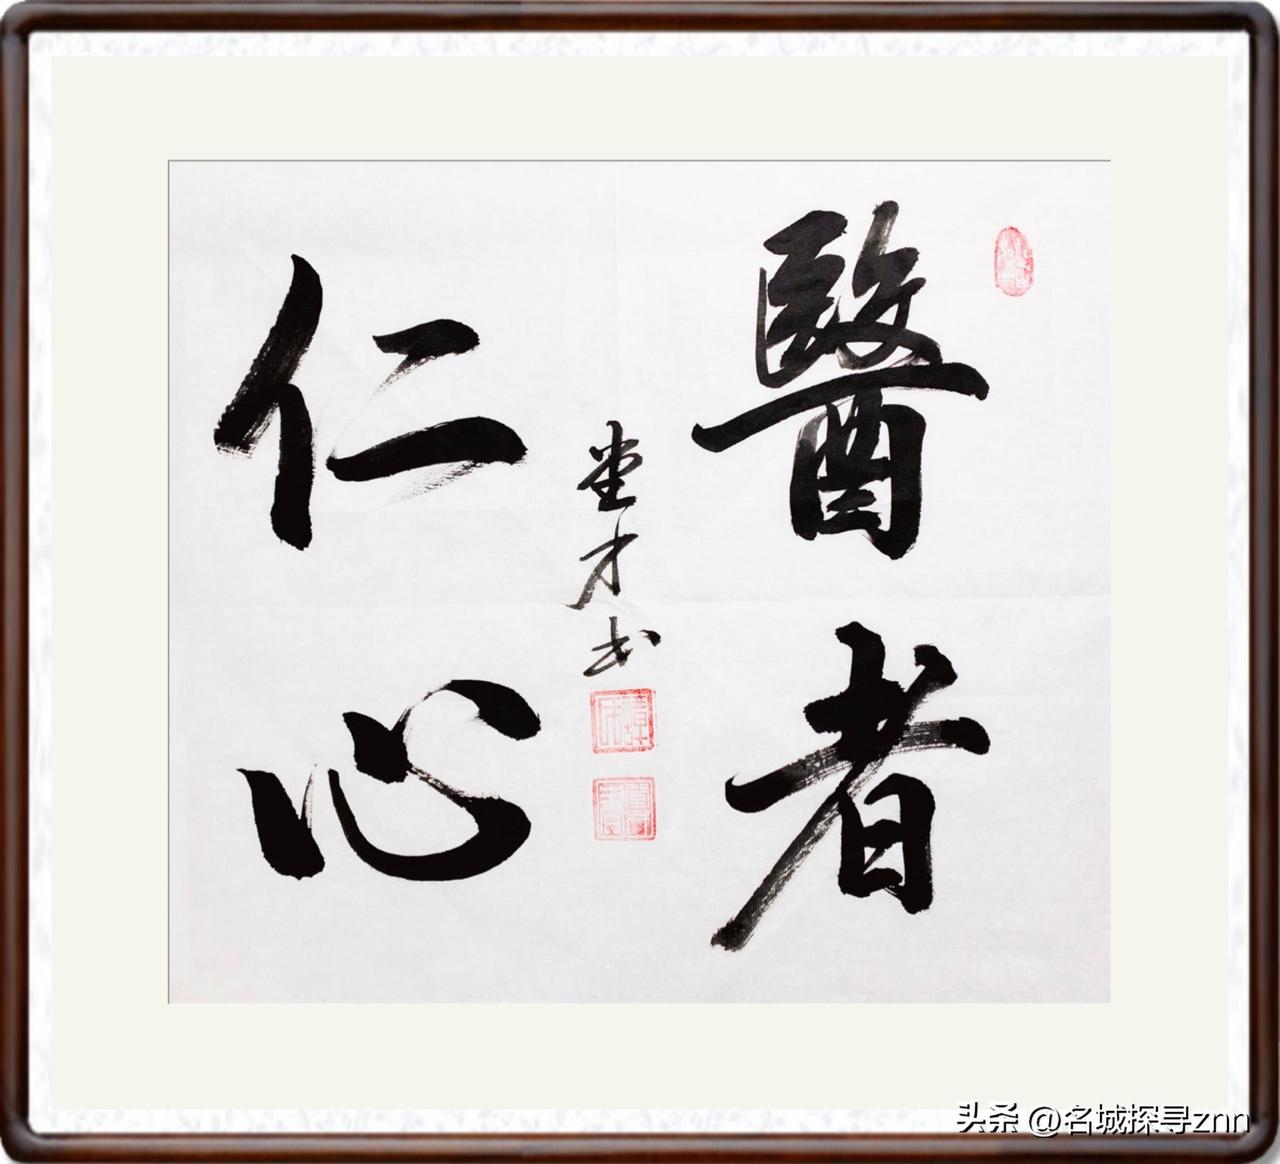 醫者
仁心
堂才书
头条 @名城探寻znn